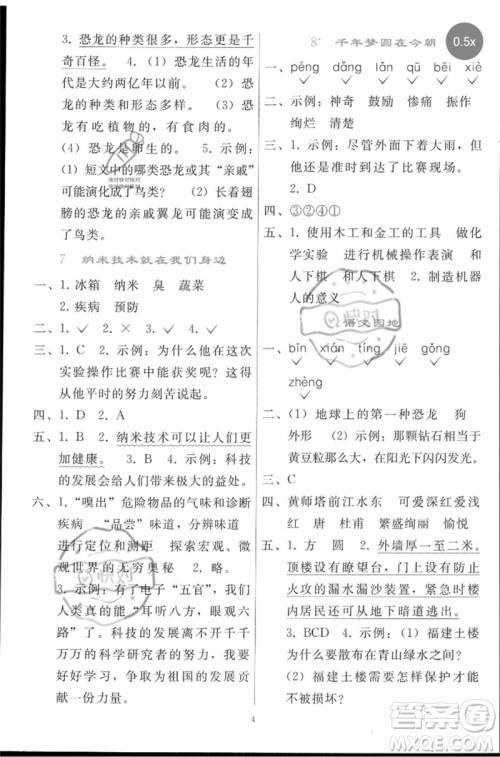 3. 恐龙的种类很多，形态更是千
奇百怪。 4. (1) 恐龙生活的年代
大约两亿年以前。 (2) 恐龙的种
类和形态多样。 (3) 恐龙
有吃植物的，有食肉的。
(4) 恐龙是卵生的。 5. 示例：
(1) 短文中的哪类恐龙的“亲戚”
可能演化成了鸟类？ (2) 长着翅
膀的恐龙的亲戚翼龙可能演变成
了鸟类。
7 纳米技术就在我们身边
一、1. 冰箱 纳米 臭 蔬菜
2. 疾病 预防
三、1. C 2. 示例：为什么他在这次
实验操作比赛中能获奖？因为这
从他平时的努力刻苦说起。
四、1. D 2. A
五、1. 2. 纳米技术可以让人们更
加健康。 3. 示例：科技
的发展让人类的生活更美好。
六、1. “嗅出”危险物品的气味和诊断
疾病 “品尝”味道，分辨味道
进行定位和测距 探索宏观、微
观世界的无穷奥秘 2. 略。
3. 示例：有了电子“五官”，我们
人类真的是“耳听八方，眼观六
路”了。科技的发展离不开千千
万万的科学研究者的努力，我要
好好学习，争取为祖国的发展贡
献一份力量。
8* 千年梦圆在今朝
0.5x
一、péng dǎng qū bēi xiè
二、示例：神奇 鼓励 惨痛 振作
绚烂 清楚
三、1. 示例：尽管外面下着大雨，但
他还是准时赶到了比赛现场。
2. D
四、③②④①
五、1. 使用木工和金工的工具 做化
学实验 进行机械操作表演 和
人下棋 和人下棋 2. 制造机器
人的意义
语文园地
一、bīn xián tíng jiē gǒng
zhèng
二、(1) 地球上的第一种恐龙 狗
外形 (2) 一颗颗钻石 闪烁于
黄豆粒般大小的恐龙
三、C
四、黄师塔前江水东 可爱深红爱浅红
唐 杜甫 繁盛绚丽 愉悦
五、1. 方 圆 2. 外墙厚一至二米。
顶楼设有瞭望台，门上设有防止
火攻的漏水漏沙装置，紧急时楼
内居民还可以从地下暗道逃出。
3. BCD 4. 示例：(1) 福建土楼
为什么要散布在青山绿水之间？
(2) 福建土楼要怎样保护才能不
被损坏？
4